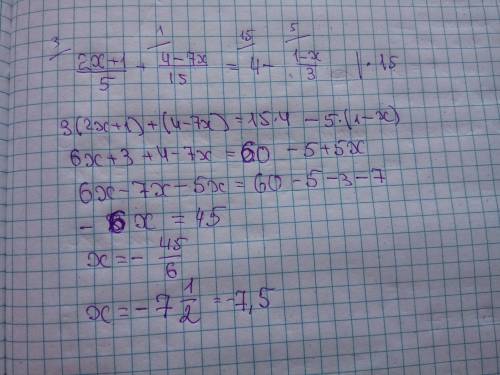 3 1 15 5
2x+1/5 + 4-7x/15 = 4 - 1-x/3 | · 15
3(2x+1)+(4-7x)=15·4 - 5·(1-x)
6x+3+4-7x=60 - 5+5x
6x-7x-5x=60-5-3-7
- 6x = 45
x=- 45/6
x=-7 1/2 =-7,5